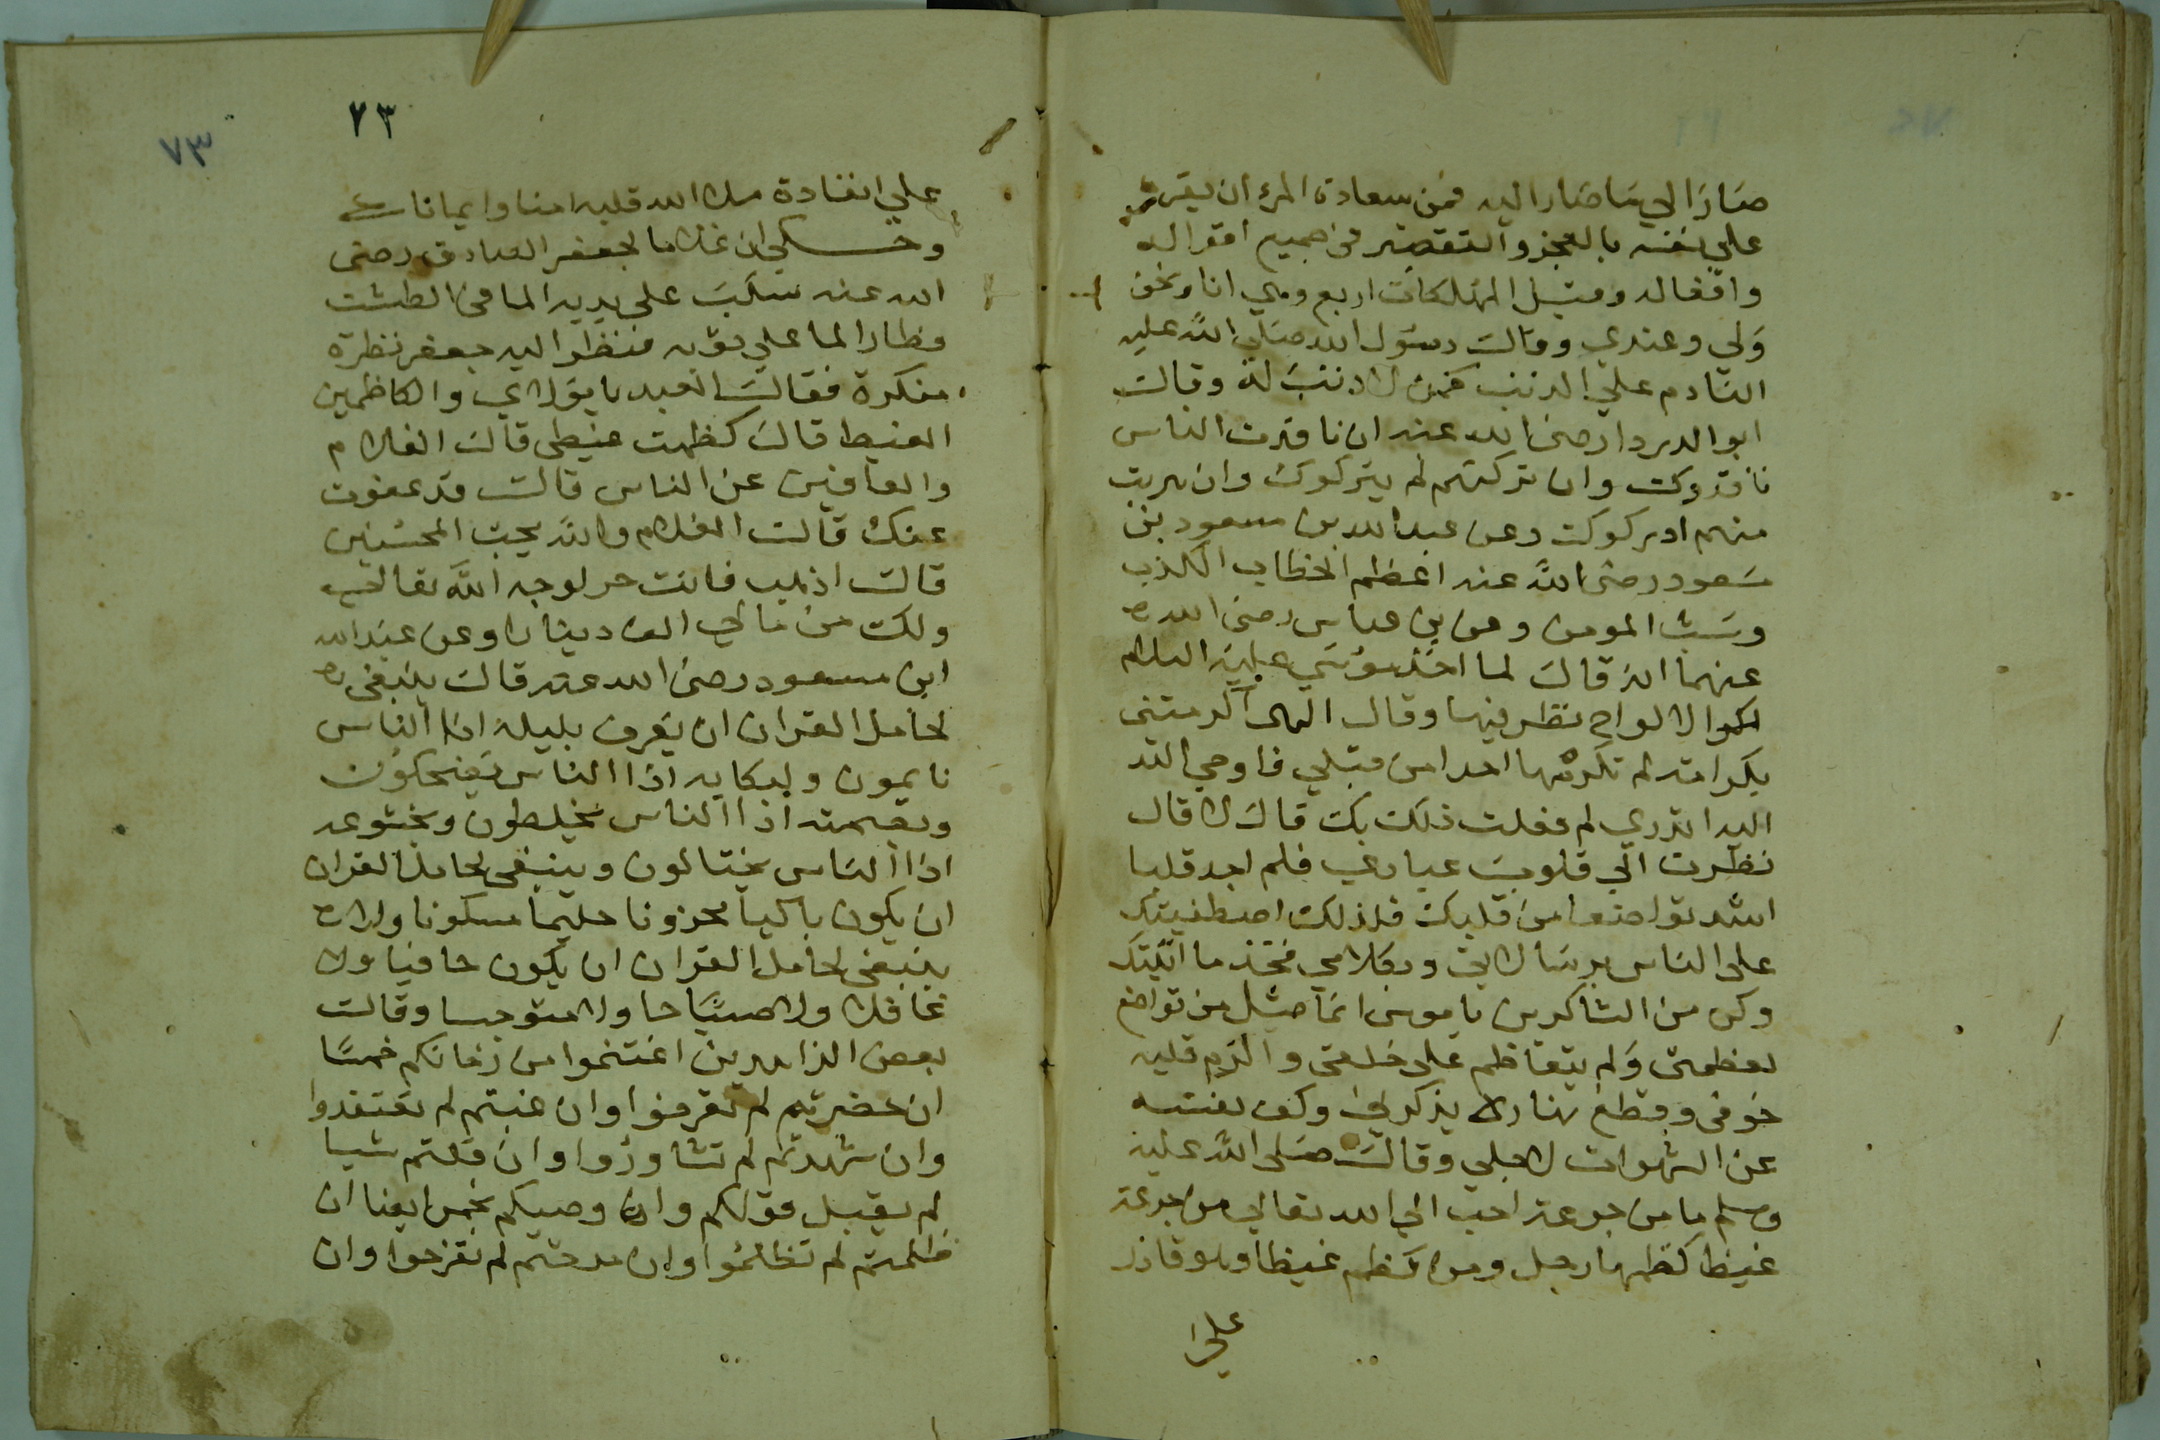 صارا الي ما صار اليه فمن سعادة المرء ان يقر
علي نفسه بالعجز والتقصير في جميع اقواله
وافعاله وقيل المهلكات اربع وهي انا ونحن
ولي وعندي وقالت رسول الله صلي الله عليه
النادم علي الدنب كمن لا دنب له وقالت
ابو الدردا رضي الله عنه ان ناقدت الناس
ناقدوكت وان تركتهم لم يتركوكت وان هربت
منهم ادركوكت وعن عبد الله بن مسعود بن
سعود رضي الله عنه اعظم الخطايا الكذب
وسب المومن وعن بن عباس رضي الله
عنهما انه قال لما اخذ موسي عليه السلام
الالواح نظر فيها وقال الهي اكرمتني
بكرامة لم تكرمها احدا من قبلي فاوحي الله
اليه اتدري لم فعلت ذلك بك قال لا قال
نظرت الي قلوب عبادي فلم اجد قلبا
اشد تواضعا من قلبك فلذلك اصطفيتك
علي الناس برسالاتي وبكلامي فخذ ما اتيتك
وكن من الشاكرين يا موسي انما اقبل من تواضع
لعظمتي ولم يتعاظم علي خلقي والزم قلبه
خوفي وقطع نهاره بذكري وكف نفسه
عن الشهوات لاجلي وقالت صلي الله عليه
وسلم ما من جرعة احب الي الله تعالي من جرعة
غيظ كظمها رجل ومن كظم غيظا وهو قادر
علي
٧٣
٧٣
علي انفاذه ملا الله قلبه امنا وايمانا
وحكي ان غلاما لجعفر الصادق رضي
الله عنه سكب علي يديه الما في الطشت
فطار الما علي ثوبه فنظر اليه جعفر نظرة
منكرة فقالت العبد يا مولاي والكاظمين
الغيط قال كظمت غيطي قال الغلام
والعافين عن الناس قالت قد عفوت
عنك قالت الغلام والله يحب المحسنين
قالت اذهب فانت حر لوجه الله تعالي
ولك من مالي الف دينار وعن عبد الله
ابن مسعود رضي الله عنه قال ينبغي
لحامل القران ان يعرف بليله اذا الناس
نايمون وببكايه اذا الناس يضحكون
وبصمته اذا الناس يخلطون وبخشوعه
اذا الناس يختالون وينبغي لحامل القران
ان يكون باكيا محزونا حليما سكونا ولا
ينبغي لحامل القران ان يكون جافيا ولا
غافلا ولا صياحا ولا وقالت
بعض الزاهدين اغتنموا من زمانكم خمسا
ان حضرتم لم تعرفوا وان غبتم لم تفتقدوا
وان شهدتم لم تشاوروا وان قلتم شيا
لم يقبل قولكم وان وصيكم بخمس ايضا ان
ظلمتم لم تظلموا وان مدحتم لم تفرحوا وان